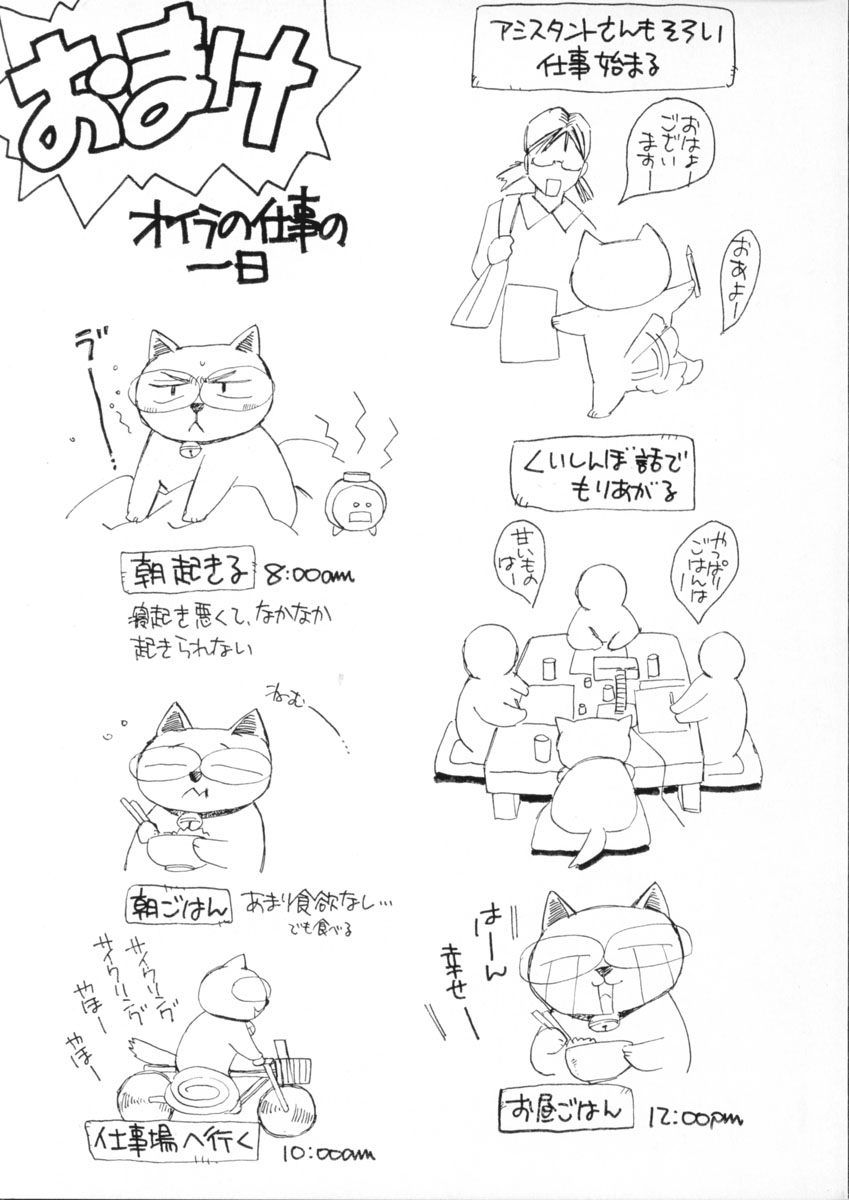 おまけ
オイラの仕事の
一日
ブーー…
朝起きる 8:00am
寝起き悪くて、なかなか
起きられない
ねむ……
朝ごはん あまり食欲なし…
でも食べる
サイクリング
サイクリング
やほー
やほー
仕事場へ行く 10:00am
アシスタントさんもそろい
仕事始まる
おはよー
ござい
まずー
おあよー
くいしんぼ話で
もりあがる
やっぱり
ごはんは
甘いもの
はー
はーん
幸せー
お昼ごはん 12:00pm